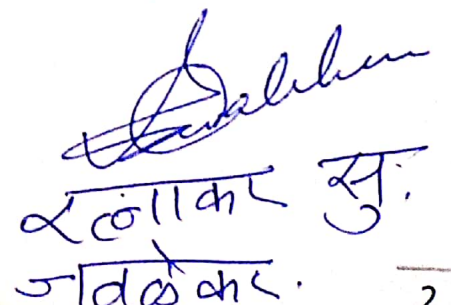 रत्नाकर सु.
जवळेकर.